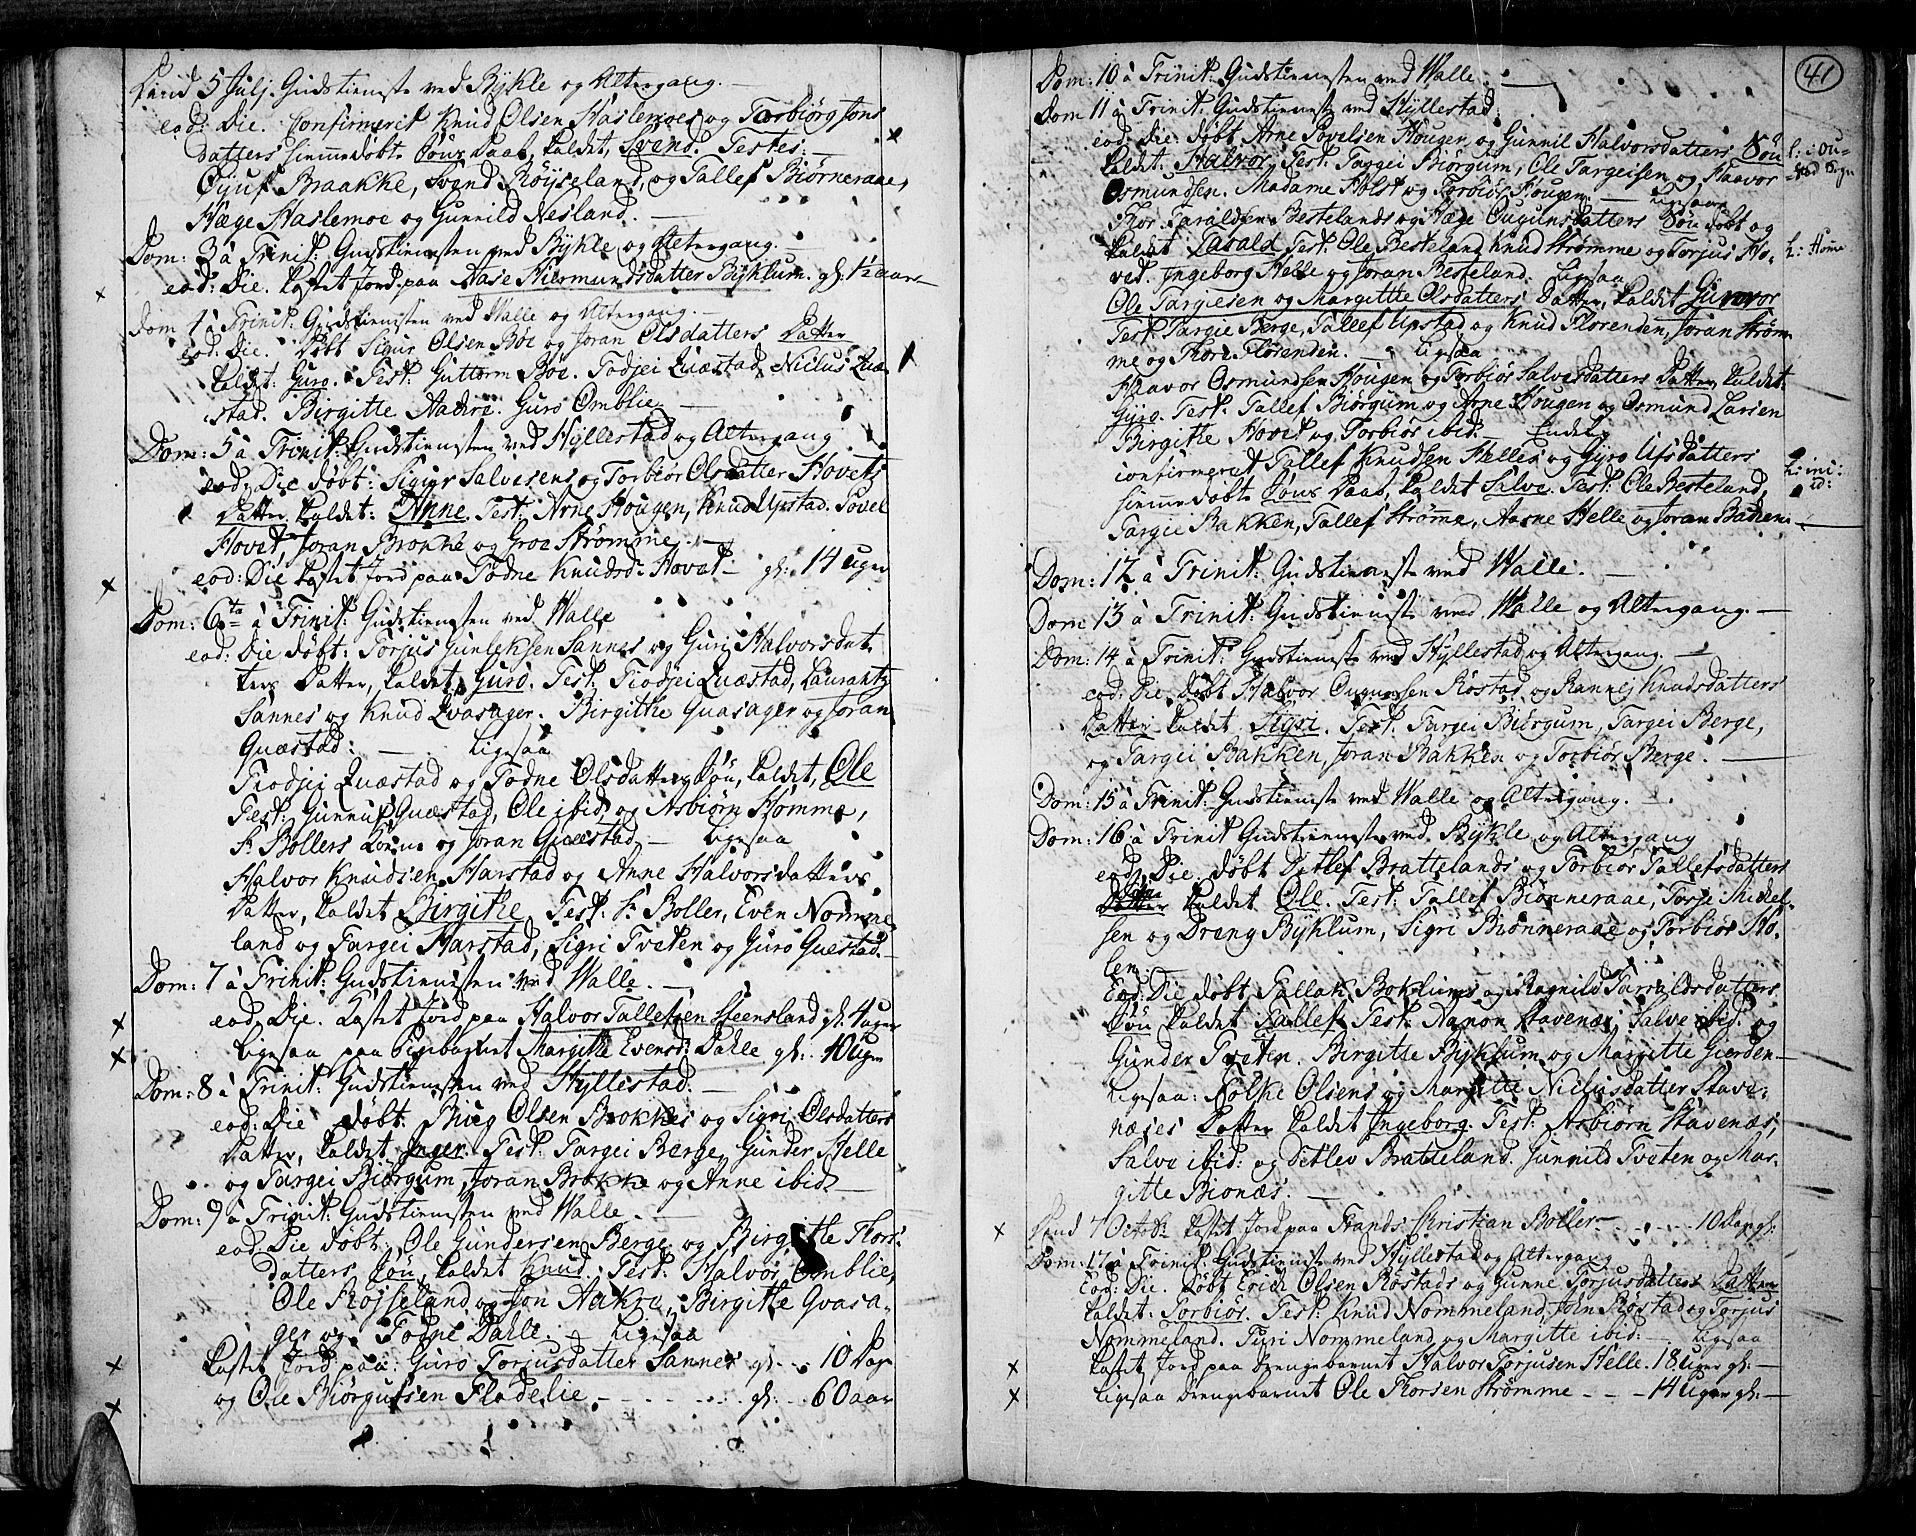 Dend 5 Julj. Gudstienst ved Bykle og Altergang. —
eod: Die. Confirmerit Knud Olsen Haslemoes og Torbiørg Jons
datters hiemmedøbt Søns Daab, kaldet, Svend. Testes: —
Øjuf Braakke, Svend Røyseland, og Tallef Biørneraae,
Hæge Haslemoe og Gunnild Nesland. —
Dom: 3 à Trinit: Gudstiensten ved Bykle og Altergang. —
eod: Die. kastet Jord paa Aase Hiermundsdatter Byklum. gl: 1½ aar —
Dom 4 à Trinit: Gudstiensten ved Walle og Altergang. —
eod: Die. Døbt Sigur Olsen Bøe og Joran Olsdatters Datter
kaldet: Guro. Test: Guttorm Boe. Todjei Quæstad, Niclus Quæ-
stad. Birgitte Aakre. Guro Omblie. —
Dom: 5 à Trinit: Gudstiensten ved Hyllestad og Altergang
eod: Die døbt: Sigur Salvesens og Torbiør Olsdatter Hovets
Datter kaldet: Anne. Test: Arne Hougen, Knud Upstad. Povel
Hovet, Joran Brokke og Groe Strømme. —
eod: Die kastet Jord paa Todne Knudsd: Hovet — gl: 14 uger
Dom: 6te à Trinit: Gudstiensten ved Walle
eod: Die døbt: Torjus Gunleksen Sannes og Guri Halvorsdat
ters Datter, kaldet Guro. Test. Tiodjei Quæstad, Laurantz
Sannes og Knud Qvasager. Birgithe Quasager og Joran
Quæstad: — Ligesaa
Tiodjei Quæstad og Todne Olsdatters Søn, kaldet, Ole
Test: Gunnuf Quæstad, Ole ibid, og Asbiørn Homme,
Sr Bollers Kone og Joran Quæstad. — Ligesaa
Halvor Knudsen Harstad og Anne Halvorsdatters
Datter, kaldet Birgithe Test: Sr Boller, Even Nomme
land og Targei Harstad, Sigri Tveten og Guro Questad. —
Dom: 7 à Trinit: Gudstiensten ved Walle. —
eod: Die. Kastet Jord paa Halvor Tallefsen Steensland gl: 4 uger
Ligesaa paa Pigebarnet Margitte Evensd: Dahle gl: 10 Uger
Dom: 8 à Trinit: Gudstiensten ved Hyllestad. —
eod: Die døbt: Biug Olsen Brokkes og Sigri Olsdatters
Datter, kaldet Inger. Test: Targei Berge, Gunder Helle
og Targei Biørgum, Joran Brokke og Anne ibid. —
Dom: 9 à Trinit: Gudstiensten ved Walle. —
eod Die døbt Ole Gundersen Berge og Birgitte Thors-
datters Søn, kaldet Knud. Test: Halvor Omblie,
Ole Røisseland og Jon Aakre, Birgitte Qvasa-
ger og Todne Dahle. — Ligesaa
kastet Jord paa: Guro Torjusdatter Sannes gl: 10 Dage
og Ole Biörgulsen Fladelie. gl: 60 aar
41
Dom: 10 à Trinit: Gudstiensten ved Walle. —
Dom 11 à Trinit: Gudstienste ved Hyllestad.
eod: Die. døbt Arne Povelsen Houger og Gunnil Halvorsdatters Søn
kaldet. Halvor. Test: Targei Biørgum, Ole Targeisen og Haavor
Osmundsen. Madame Holst og Torbiør Hougen. — Ligesaa
Thor Taraldsen Bestelands og Hæge Gugulnsdatters Søn døbt og
kaldet Tarald Test: Ole Besteland Knud Strømme og Torjus Ho-
ved. Ingeborg Helle og Joran Besteland. Ligesaa
Ole Targiesen og Margitte Olsdatters Datter, kaldet Gunvor
Test: Targie Berge, Tallef Upstad og Knud Florenden, Joran Strøm-
me og Thore Florenden. — Ligesaa
Haavor Osmundsen Hougen og Torbiør Salvesdatters Datter, kaldet
Gyro. Test: Tallef Biørgum og Arne Hougen og Osmund Larsen
Birgithe Hovet og Torbiør ibid. — Endelig
confirmeret Tallef Knudsen Helles og Gyro Ulfsdatters
hiemmedøbte Søns Daab, kaldet Salve. Test: Ole Besteland,
Targie Bakken, Tallef Strømme, Aasne Helle og Joran Backen. —
Dom: 12 à Trinit: Gudstienste ved Walle. —
Dom 13 à Trinit: Gudstienste ved Walle og Altergang. —
Dom: 14 à Trinit: Gudstienste ved Hyllestad og Altergang. —
eod: Die. døbt Halvor Gunnersen Røstad og Rannej Knudsdatters
Datter kaldet Sigri. Test: Targei Biørgum, Targei Berge,
og Targei Bakken, Joran Bakken og Torbiør Berge. —
Dom: 15 à Trinit: Gudstienste ved Walle og Altergang. —
Dom: 16 à Trinit Gudstienste ved Bykle og Altergang
eod: Die. døbt Detlef Brattelands og Torbiør Tallefsdatters
Søn kaldet Ole. Test: Tallef Biönneraae, Torje Mickel-
sen og Dreng Byklum, Sigri Biönneraae og Torbiør Ho-
len. —
Eod: Die døbt Tallak Boklums og Ragnild Tarraldsdatters
Søn kaldet Tallef. Test: Aanon Stavenæs, Salve ibid: og
Gunder Tveten. Birgitte Byklum og Margitte Gierden —
Ligesaa: Folke Olsens og Margitte Niclusdatter Stave-
næses Datter kaldet Ingeborg. Test: Asbiørn Stavenæs,
Salve ibid: og Detlev Bratteland. Gunnild Tveten og Mar-
gitte Bionæs. —
Dend 7 Octob: kastet Jord paa Frands Christian Boller — 10 Dage gl:
Dom: 17 à Trinit: Gudstienste ved Hyllestad og Altergang
Eod: Die. Døbt Erich Olsen Røstads og Gunne Torjusdatters Datter
kaldet: Torbiør. Test: Knud Nommeland, Jon Røstad og Torjus
Nommeland. Turi Nommeland og Margitte ibid: — Ligesaa
kastet Jord paa Drengebarnet Halvor Torjusen Helle. 18 uger gl: —
Ligesaa Drengebarnet Ole Thorsen Strømme - - - 14 Uger gl: —